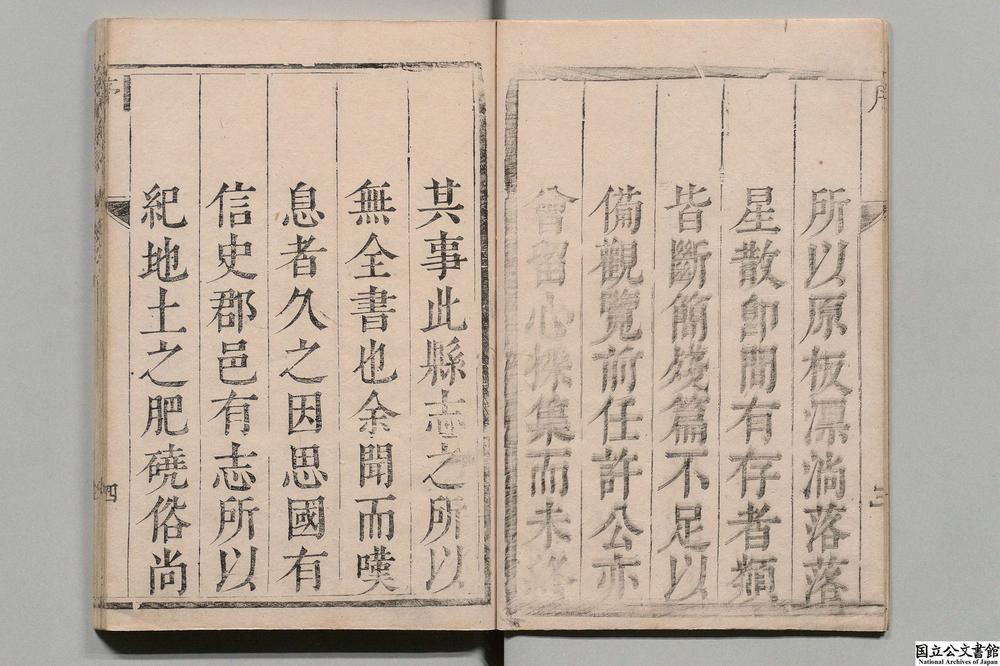 序
三
所以原板漂淌落落
星散卽間有存者類
皆斷簡殘篇不足以
備觀覽前任許公亦
曾留心採集而未終
其事此縣志之所以
無全書也余聞而嘆
息者久之因思國有
信史郡邑有志所以
紀地土之肥磽俗尚
序
四
国立公文書館
National Archives of Japan